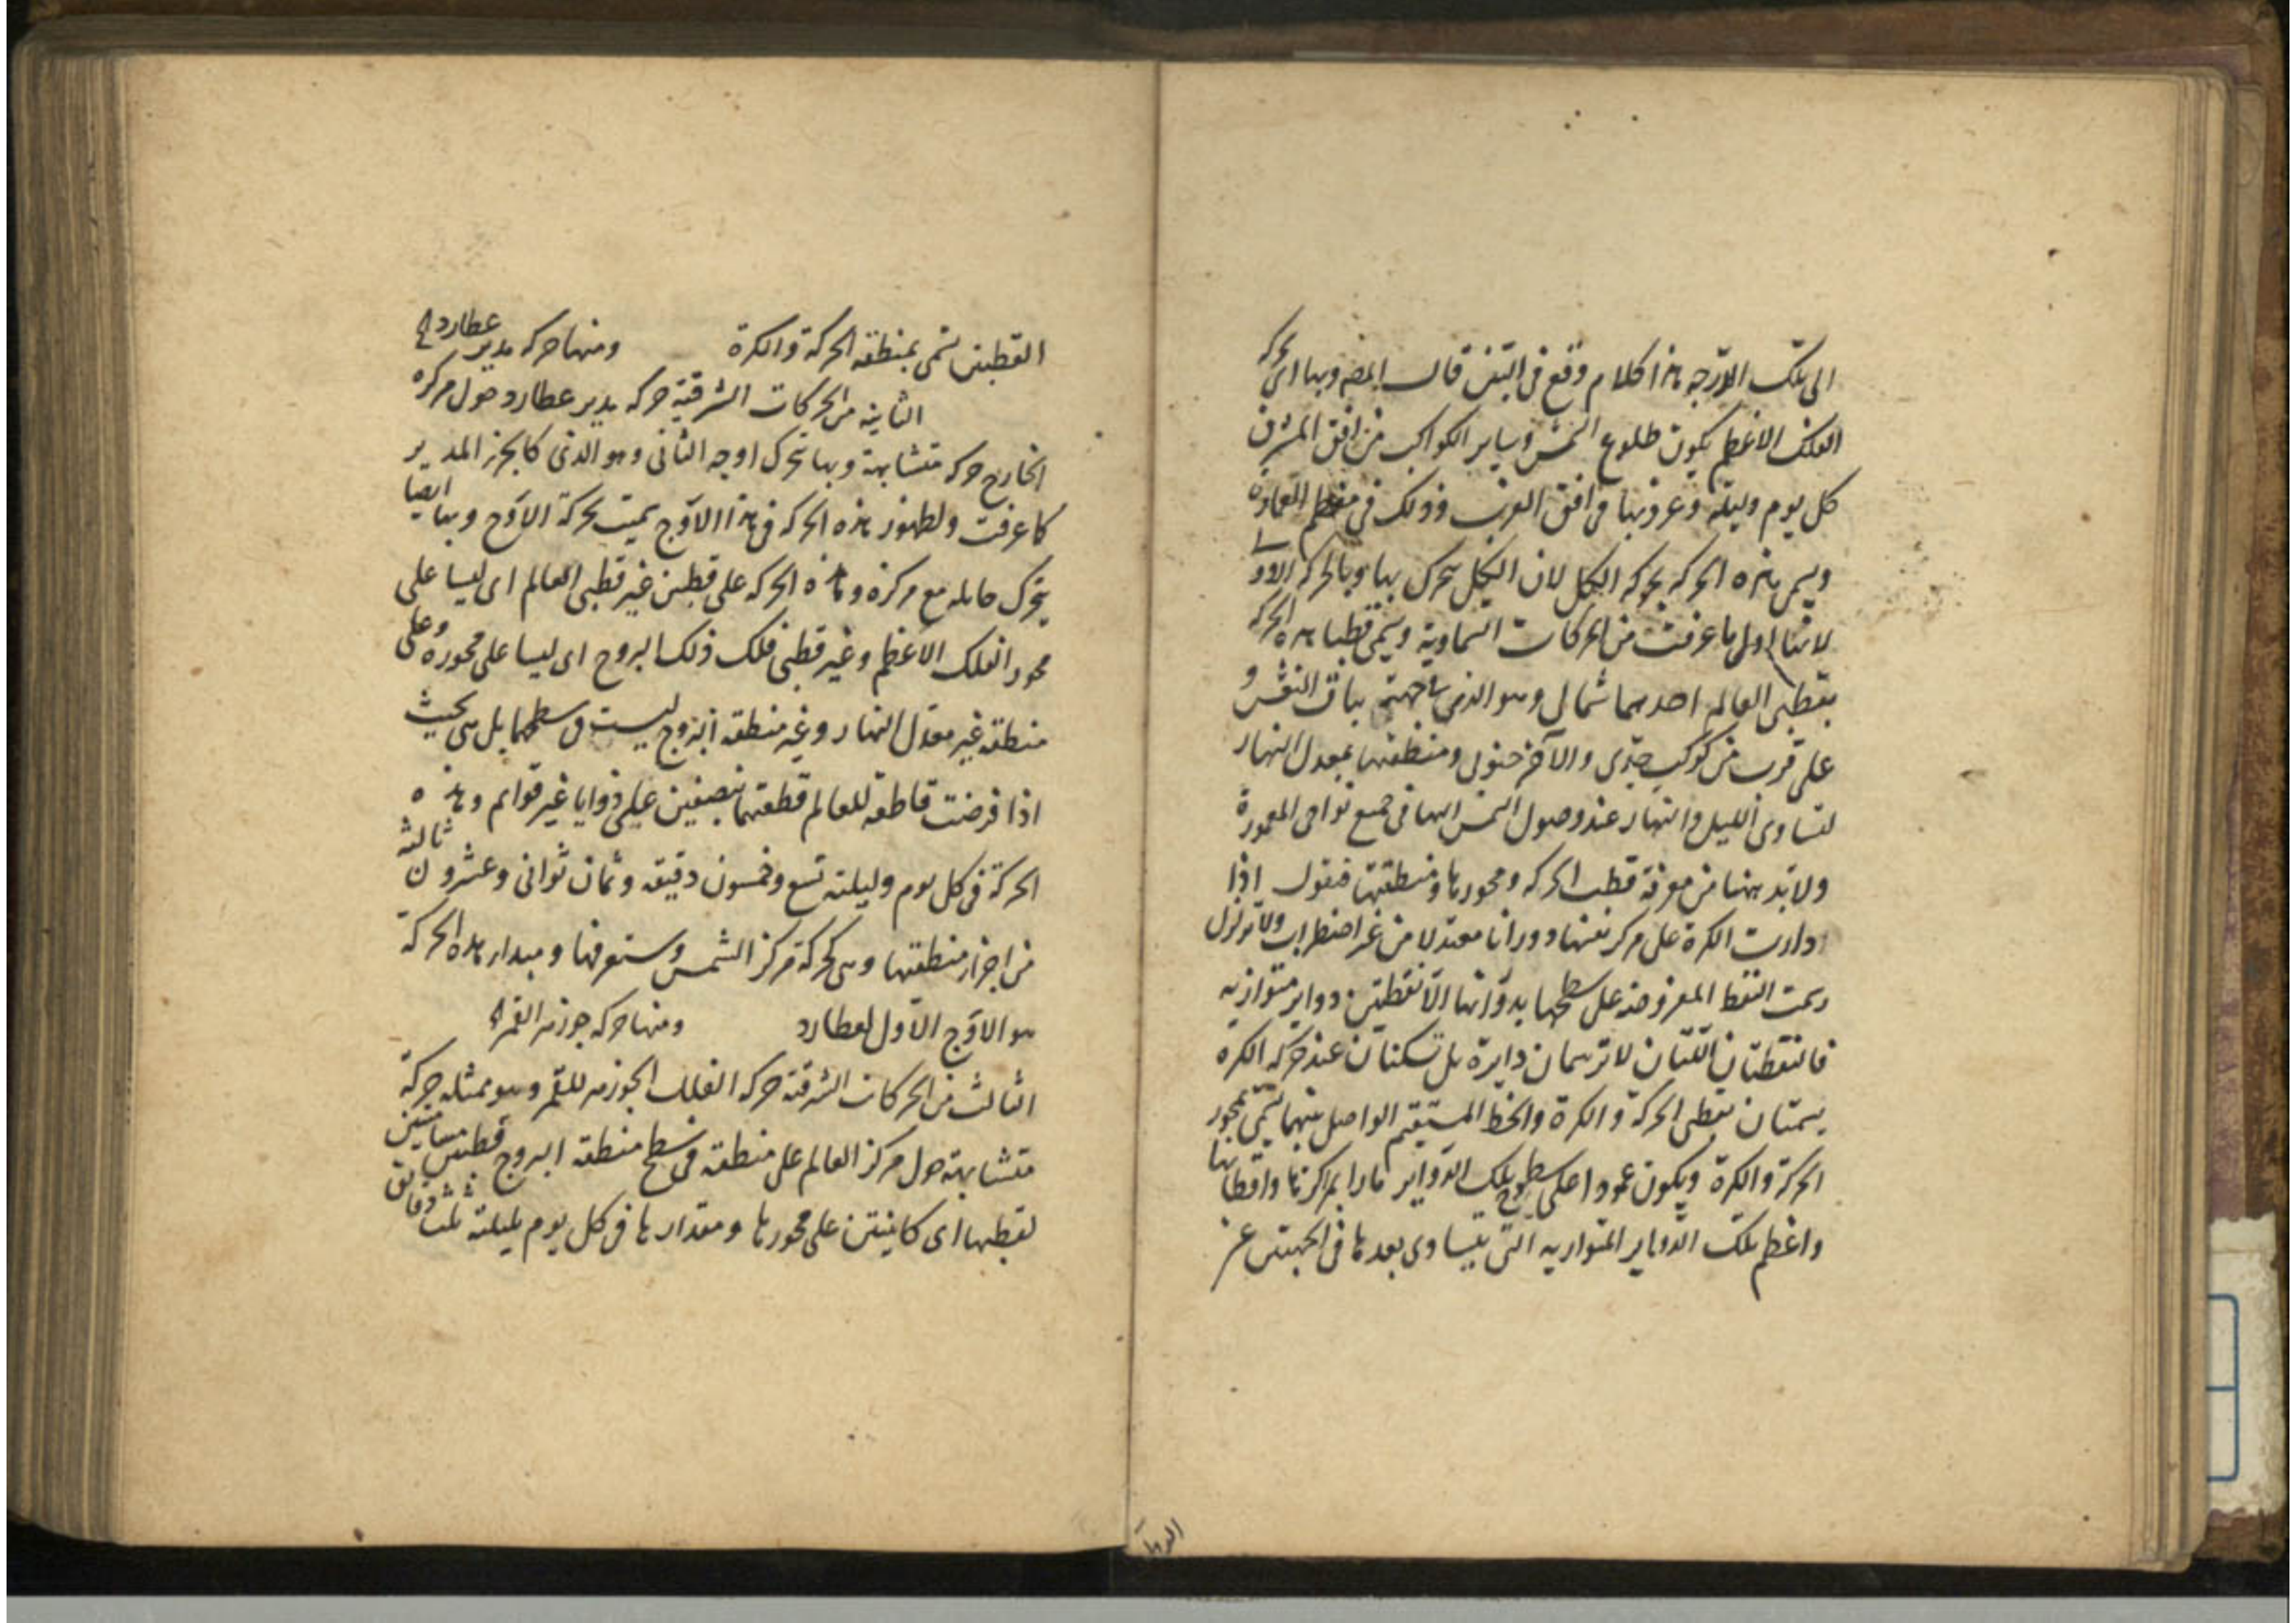 الى تلك الدرجه هذا كلام وقع فى البين قال المصـ وبها اى بحركه
الفلك الاعظم يكون طلوع الشمس وساير الكواكب من افق المشرق
كل يوم وليلة وغروبها فى افق الغرب وذلك فى معظم المعمورة
ويسمى هذه الحركه بحركه الكل لان الكل يتحرك بها وبالحركه الاولى
لانها اول ما عرفت من الحركات السماوية ويسمى قطبا هذه الحركه
بقطبى العالم احدهما شمالى وهو الذى بناحية بنات النعش و
على قرب من كوكب جدى والآخر جنوبى ومنطقتها بمعدل النهار
لتساوى الليل والنهار عند وصول الشمس اليها فى جميع نواحى المعمورة
ولابد ههنا من معرفة قطب الحركه ومحورها ومنطقتها فنقول اذا
دارت الكرة على مركز نفسها دورانا معتدلا من غير اضطراب ولا تزلزل
رسمت النقط المفروضه على سطحها بدورانها الا نقطتين دواير متوازيه
فالنقطتان اللتان لا ترسمان دايرة بل تسكنان عند حركه الكره
يسميان بقطبى الحركة والكرة والخط المستقيم الواصل بينهما يسمى بمحور
الحركة والكرة ويكون عمودا على سطوح تلك الدواير مارا بمراكزها واقطابها
واعظم تلك الدواير المتوازيه التى يتساوى بعدها فى الجهتين عن
القطبين تسمى بمنطقه الحركة والكرة ومنها حركه مدير عطارد
الثانيه من الحركات الشرقية حركه مدير عطارد حول مركزه
الخارج حركه متشابهة وبها يتحرك اوجه الثانى وهو الذى كالجزء المدير
كما عرفت ولظهور هذه الحركه فى هذا الاوج سميت بحركة الاوج وبها ايضا
يتحرك حامله مع مركزه وهذه الحركه على قطبين غير قطبى العالم اى ليسا على
محور الفلك الاعظم وغير قطبى فلك ذلك البروج اى ليسا على محوره وعلى
منطقه غير معدل النهار وغير منطقه البروج ليست فى سطحهما بل هى بحيث
اذا فرضت قاطعه للعالم قطعتهما بنصفين على زوايا غير قوائم وهذه
الحركة فى كل يوم وليلته تسع وخمسون دقيقه وثمان ثوانى وعشرون ثالثه
من اجزاء منطقتها وهى كحركة مركز الشمس وستعرفها ومبدا هذه الحركة
هو الاوج الاول لعطارد ومنها حركه جوزهر القمر
الثالث من الحركات الشرقيه حركه الفلك الجوزهر للقمر وهو ممثله حركة
متشابهة حول مركز العالم على منطقه فى سطح منطقه البروج قطبين مسامتين
لقطبيها اى كاينتين على محورها ومقدارها فى كل يوم بليلته ثلث دقائق